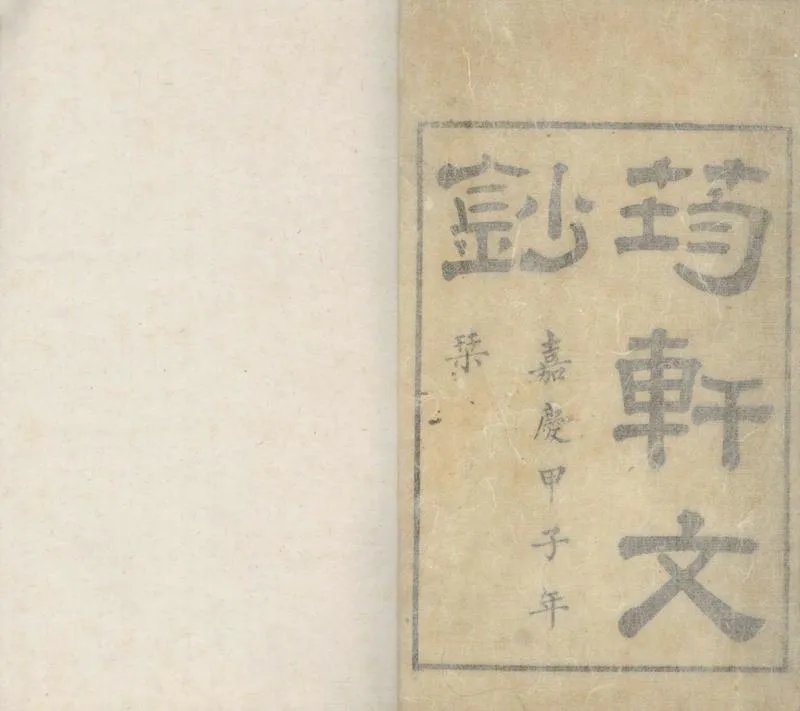 筠軒文
鈔
嘉慶甲子年
栞